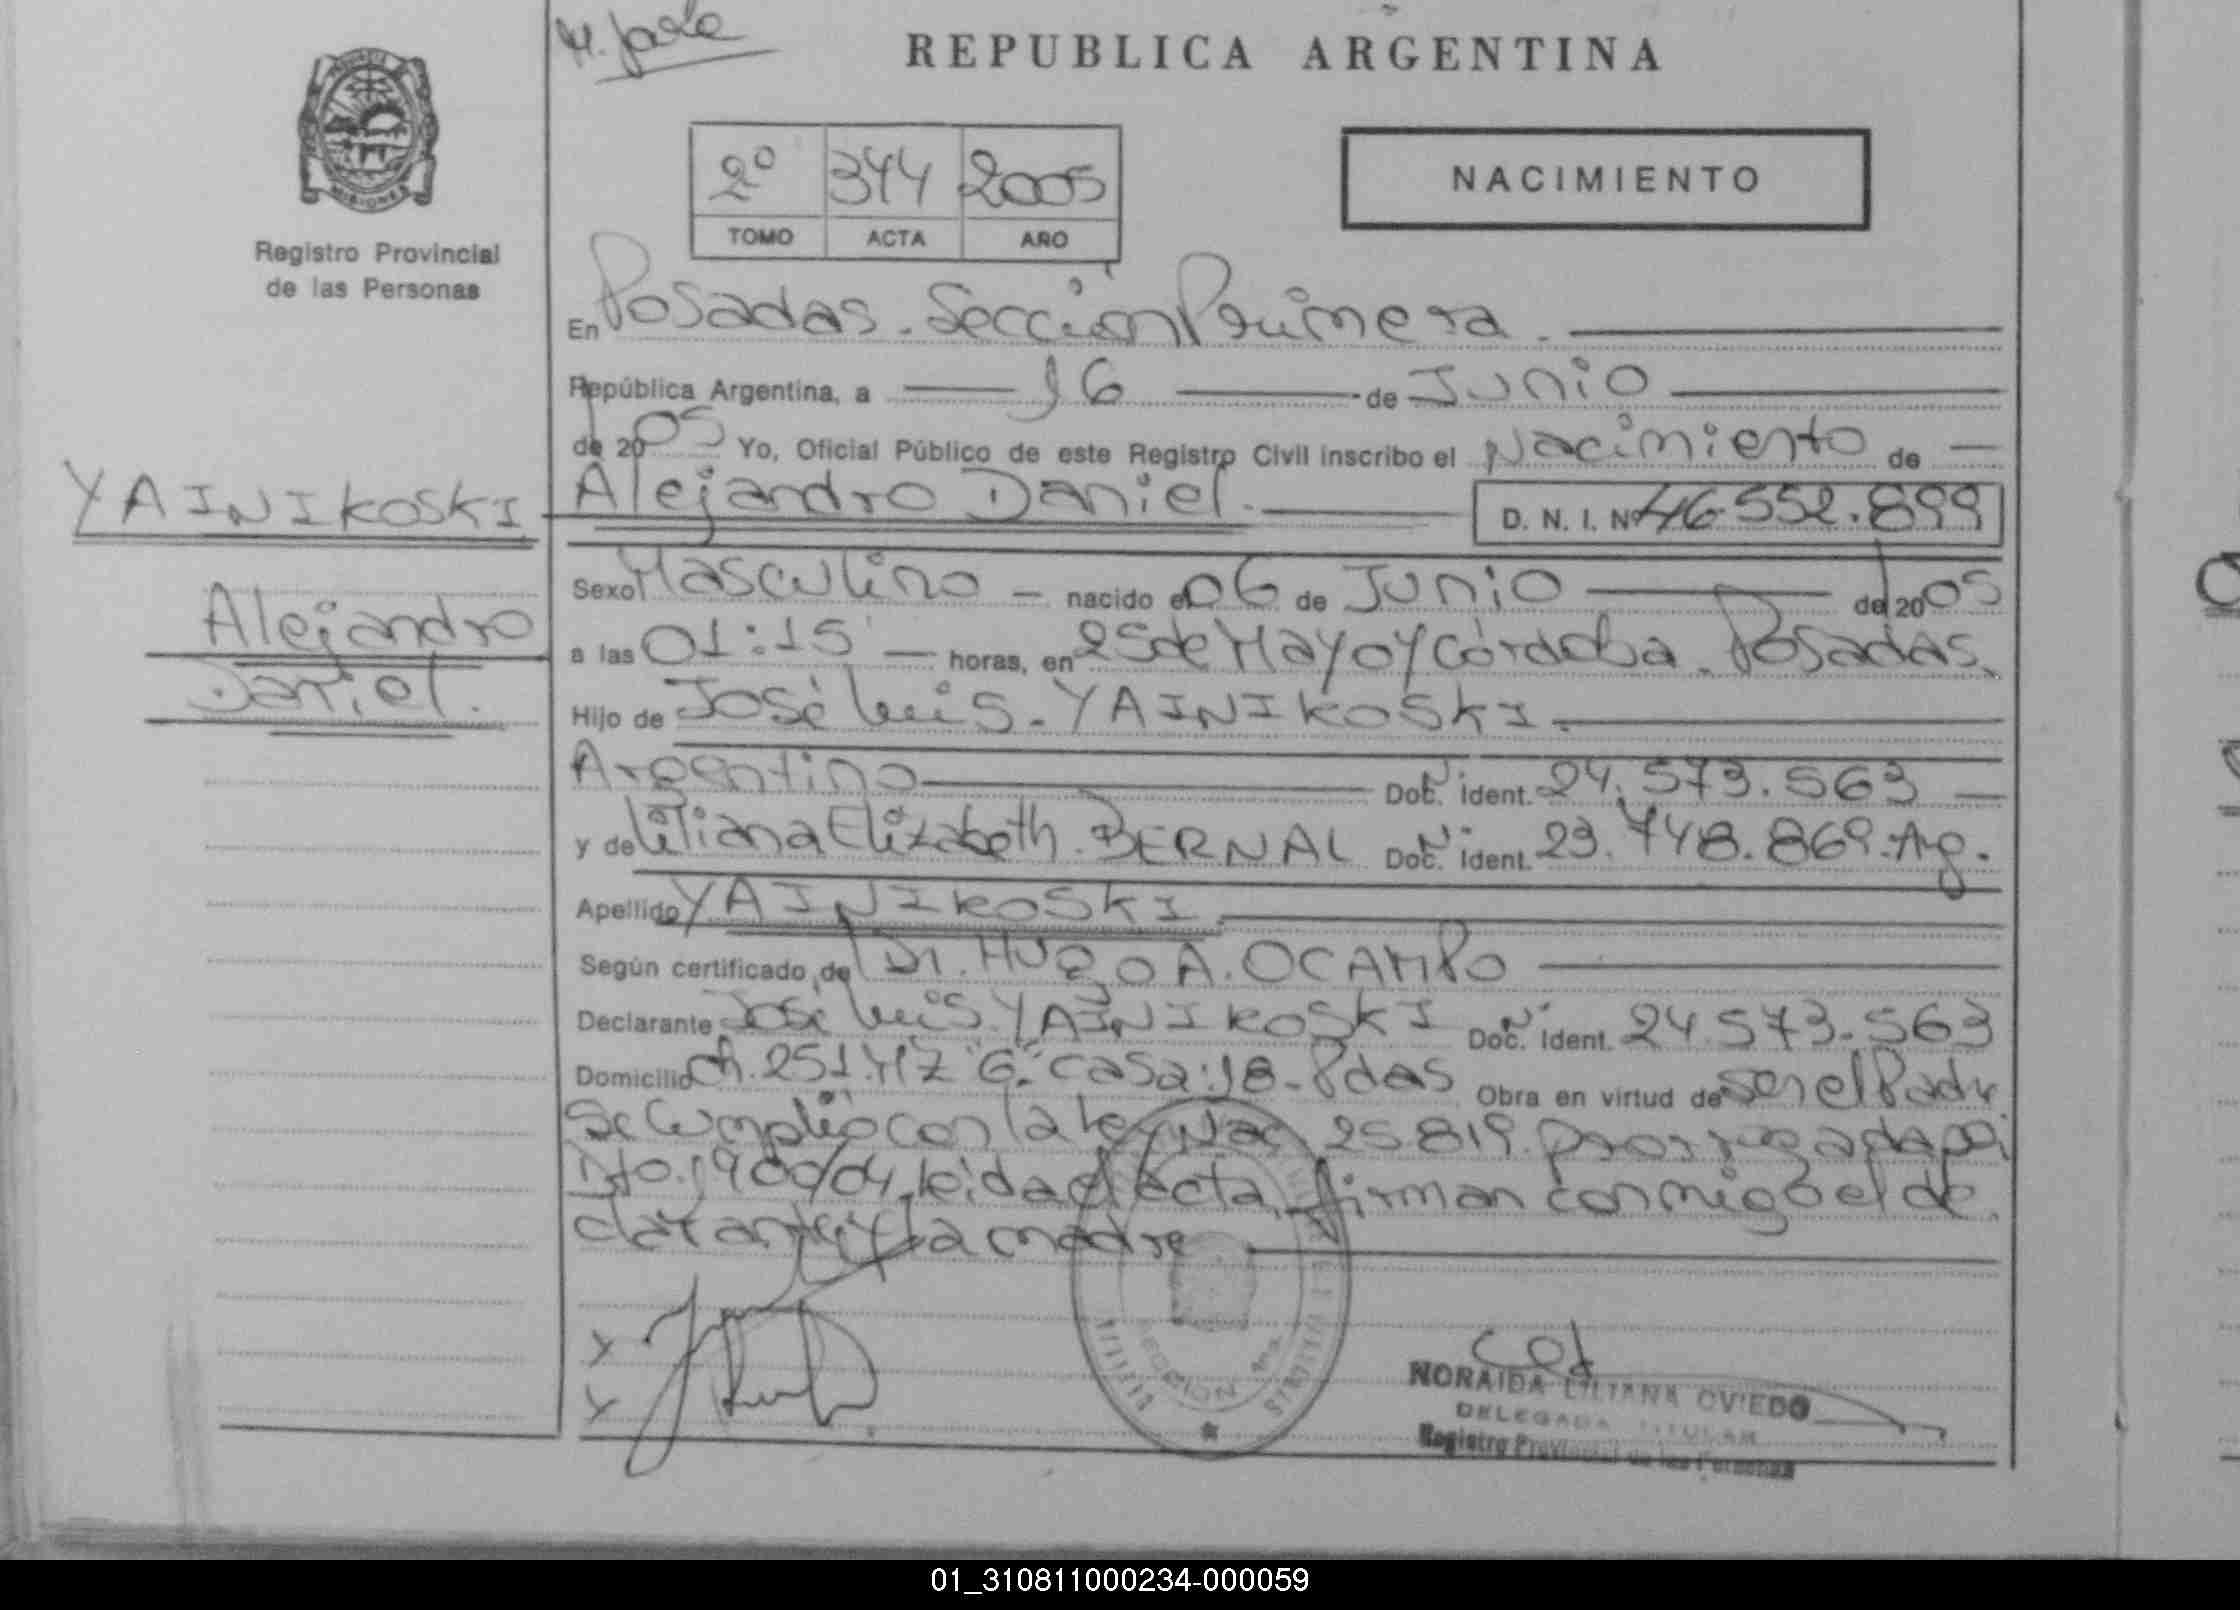 REPUBLICA ARGENTINA
2º 344 2005
TOMO ACTA AÑO
NACIMIENTO
MISIONES
Registro Provincial
de las Personas
En Posadas. Sección Primera.
República Argentina, a 16 de Junio
de 2005 Yo, Oficial Público de este Registro Civil inscribo el Nacimiento de
YAINIKOSKI
Alejandro Daniel. D. N. I. Nº 46.552.899
Alejandro
Daniel.
Sexo Masculino nacido el 06 de Junio de 2005
a las 01:15 horas, en 25 de Mayo y Córdoba. Posadas.
Hijo de José Luis. YAINIKOSKI.
Argentino Doc. ident. 24.573.563
y de Liliana Elizabeth. BERNAL Doc. ident. 23.748.869. Arg.
Apellido YAINIKOSKI.
Según certificado de Dr. HUgo A. OCAMPO
Declarante José Luis. YAINIKOSKI Doc. ident. 24.573.563
Domicilio Ch. 251. MZ "G". Casa: 18 - Pdas Obra en virtud de ser el Padre
Se Cumplió con la ley Nac. 25819. prorrogada por
Dto. 1900/04, leida el acta, firman conmigo el de
clarante y la madre
NORAIDA LILIANA OVIEDO
DELEGADA TITULAR
Registro Provincial de las Personas
01_310811000234-000059